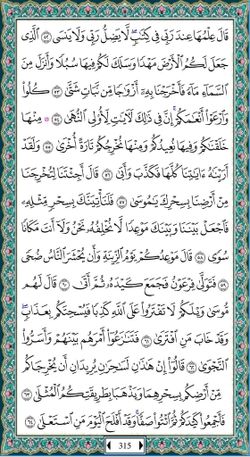 قَالَ عِلْمُهَا عِندَ رَبِّي فِي كِتَٰبٍ لَّا يَضِلُّ رَبِّي وَلَا يَنسَى ٥٢ ٱلَّذِي
جَعَلَ لَكُمُ ٱلْأَرْضَ مَهْدًا وَسَلَكَ لَكُمْ فِيهَا سُبُلًا وَأَنزَلَ مِنَ
ٱلسَّمَآءِ مَآءً فَأَخْرَجْنَا بِهِۦٓ أَزْوَٰجًا مِّن نَّبَاتٍ شَتَّىٰ ٥٣ كُلُوا۟
وَٱرْعَوْا۟ أَنْعَٰمَكُمْ إِنَّ فِي ذَٰلِكَ لَـَٔايَٰتٍ لِّأُو۟لِي ٱلنُّهَىٰ ٥٤ مِنْهَا
خَلَقْنَٰكُمْ وَفِيهَا نُعِيدُكُمْ وَمِنْهَا نُخْرِجُكُمْ تَارَةً أُخْرَىٰ ٥٥ وَلَقَدْ
أَرَيْنَٰهُ ءَايَٰتِنَا كُلَّهَا فَكَذَّبَ وَأَبَىٰ ٥٦ قَالَ أَجِئْتَنَا لِتُخْرِجَنَا
مِنْ أَرْضِنَا بِسِحْرِكَ يَٰمُوسَىٰ ٥٧ فَلَنَأْتِيَنَّكَ بِسِحْرٍ مِّثْلِهِۦ
فَٱجْعَلْ بَيْنَنَا وَبَيْنَكَ مَوْعِدًا لَّا نُخْلِفُهُۥ نَحْنُ وَلَآ أَنتَ مَكَانًا
سُوًى ٥٨ قَالَ مَوْعِدُكُمْ يَوْمُ ٱلزِّينَةِ وَأَن يُحْشَرَ ٱلنَّاسُ ضُحًى
٥٩ فَتَوَلَّىٰ فِرْعَوْنُ فَجَمَعَ كَيْدَهُۥ ثُمَّ أَتَىٰ ٦٠ قَالَ لَهُم
مُّوسَىٰ وَيْلَكُمْ لَا تَفْتَرُوا۟ عَلَى ٱللَّهِ كَذِبًا فَيُسْحِتَكُم بِعَذَابٍ
وَقَدْ خَابَ مَنِ ٱفْتَرَىٰ ٦١ فَتَنَٰزَعُوٓا۟ أَمْرَهُم بَيْنَهُمْ وَأَسَرُّوا۟
ٱلنَّجْوَىٰ ٦٢ قَالُوٓا۟ إِنْ هَٰذَٰنِ لَسَٰحِرَٰنِ يُرِيدَانِ أَن يُخْرِجَاكُم
مِّنْ أَرْضِكُم بِسِحْرِهِمَا وَيَذْهَبَا بِطَرِيقَتِكُمُ ٱلْمُثْلَىٰ ٦٣
فَأَجْمِعُوا۟ كَيْدَكُمْ ثُمَّ ٱئْتُوا۟ صَفًّا وَقَدْ أَفْلَحَ ٱلْيَوْمَ مَنِ ٱسْتَعْلَىٰ ٦٤
315